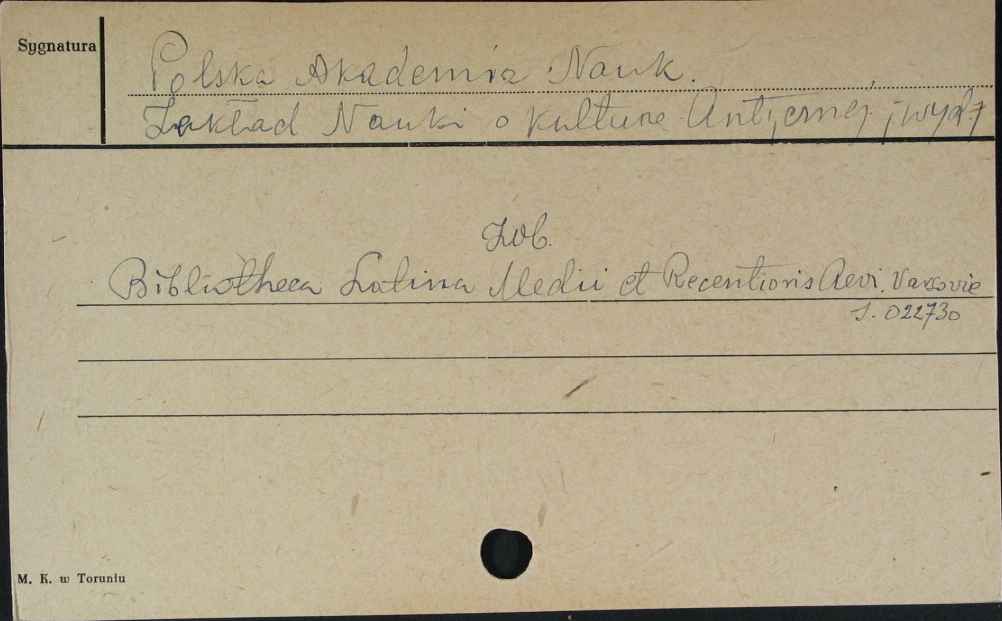 Sygnatura
Polska Akademia Nauk.
Zakład Nauki o kulturze Antycznej; wyd
Zob.
Bibliotheca Latina Medii et Recentioris Aevi. Varsovie
S. 022730
M. K. w Toruniu